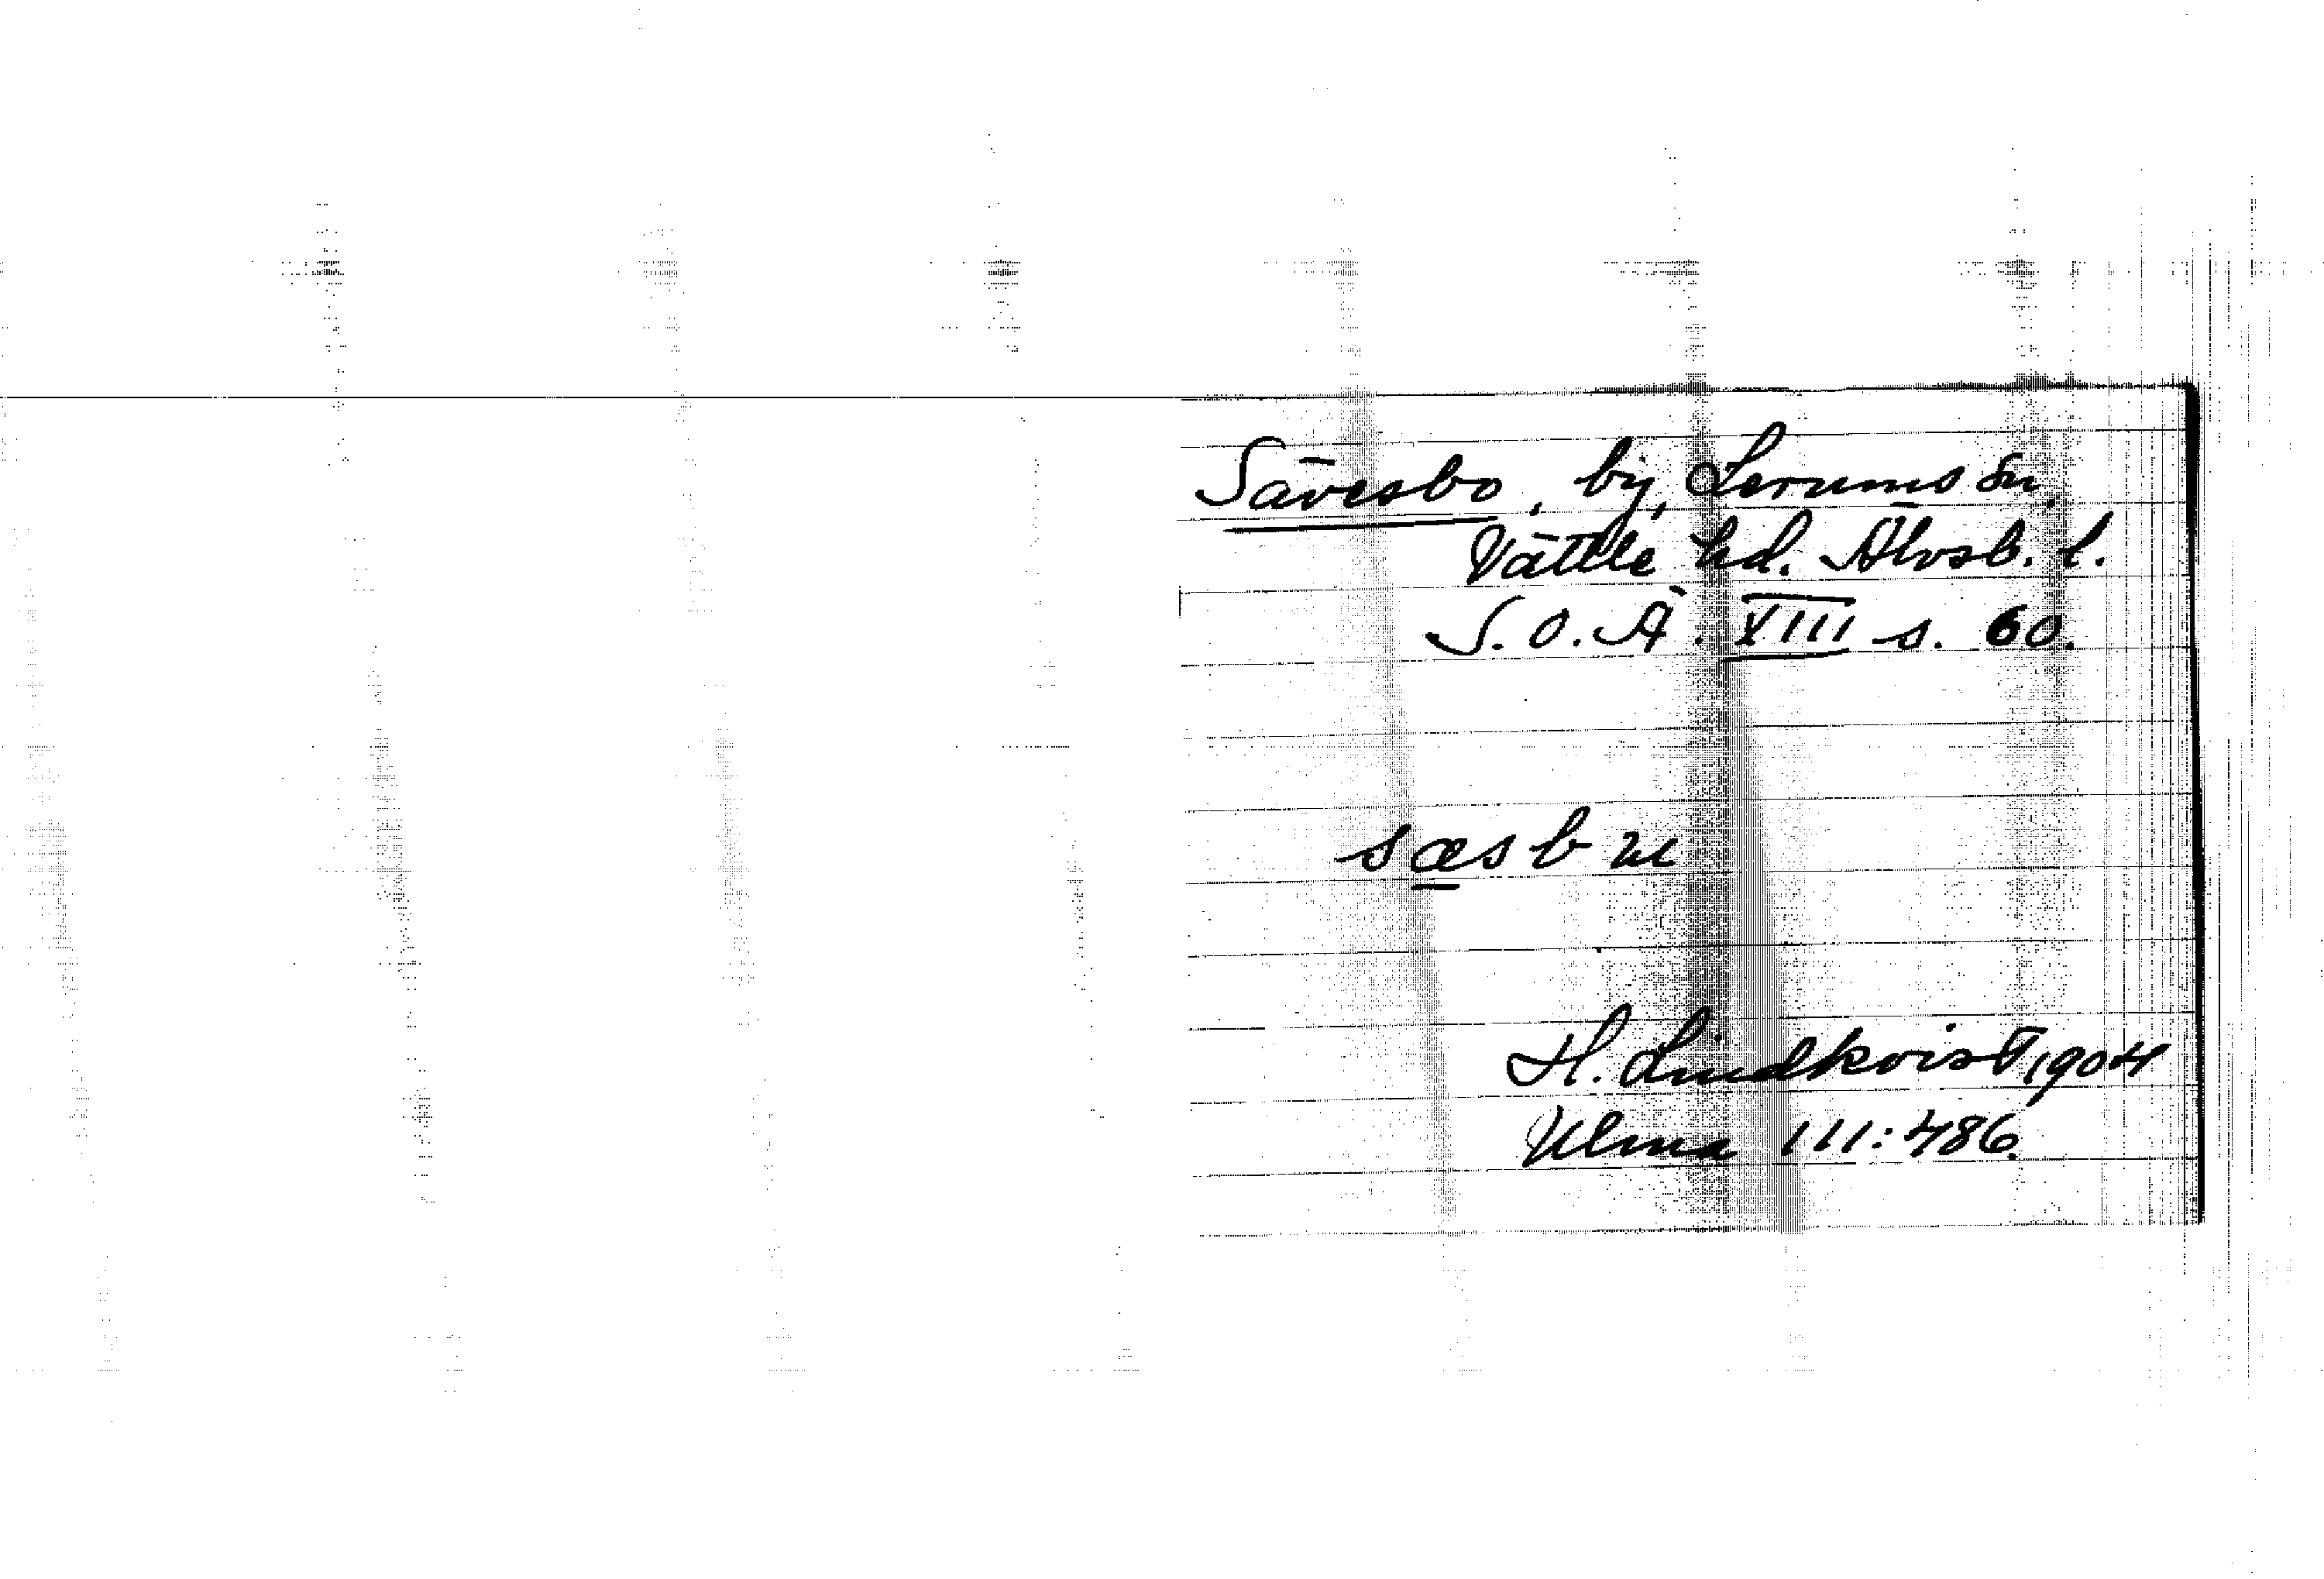 Sävesbo, by, Lerums sn,
Vättle hd. Älvsb. l.
S.O.Ä. XIII s. 60.
sæsbɯ
H. Lindkvist 1904
Ulma 111:486.